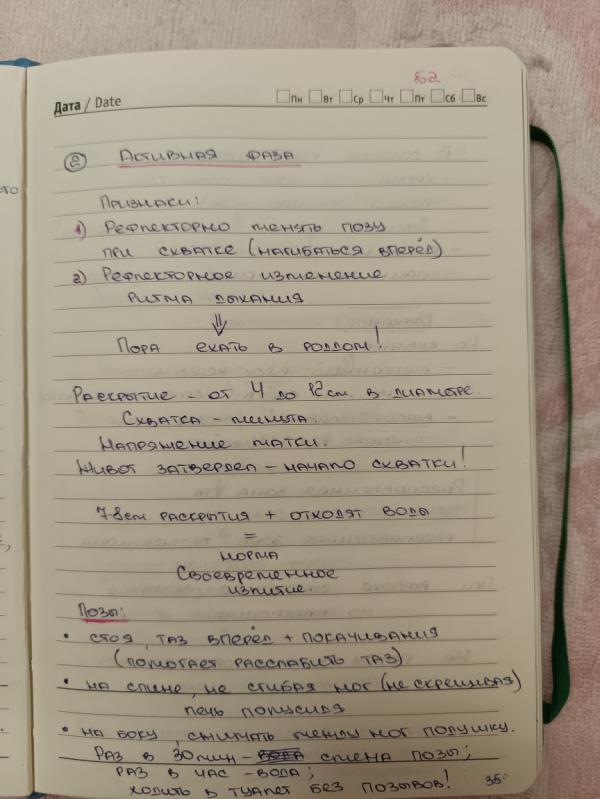 62
Дата / Date Пн Вт Ср Чт Пт Сб Вс
② Активная фаза
Признаки:
1) Рефлекторно менять позу
при схватке (нагибаться вперёд)
2) Рефлекторное изменение
ритма дыхания
⇓
Пора ехать в роддом!
Раскрытие - от 4 до 12 см. в диаметре.
Схватка - минута.
Напряжение матки.
Живот затвердел - начало схватки!
7-8см. раскрытия + отходят воды
=
норма
Своевременное
излитие.
Позы:
• стоя, таз вперёд + покачивания
(помогает расслабить таз)
• на спине, не сгибая ног (не скрещивая)
лечь полусидя
• на боку, сжимать между ног подушку.
Раз в 30мин - смена позы;
раз в час - вода;
ходить в туалет без позывов!
35